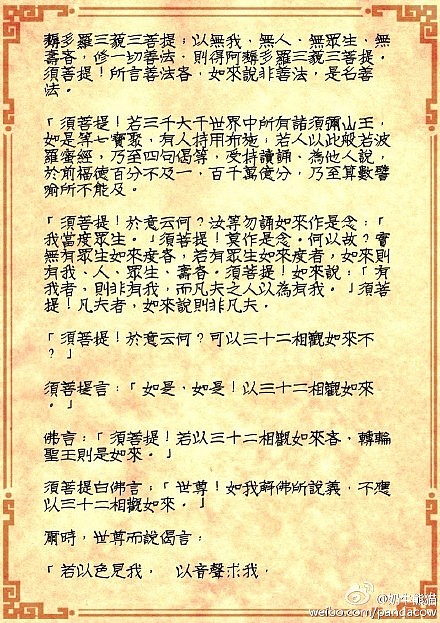 耨多羅三藐三菩提；以無我．無人．無眾生．無
壽者，修一切善法．則得阿耨多羅三藐三菩提．
須菩提！所言善法者，如來說非善法，是名善
法．
「須菩提！若三千大千世界中所有諸須彌山王，
如是等七寶聚，有人持用布施；若人以此般若波
羅蜜經，乃至四句偈等，受持讀誦、為他人說，
於前福德百分不及一，百千萬億分，乃至算數譬
喻所不能及．
「須菩提！於意云何？汝等勿謂如來作是念：「
我當度眾生．」須菩提！莫作是念．何以故？實
無有眾生如來度者，若有眾生如來度者，如來則
有我、人、眾生、壽者．須菩提！如來說：「有
我者，則非有我，而凡夫之人以為有我．」須菩
提！凡夫者，如來說則非凡夫．
「須菩提！於意云何？可以三十二相觀如來不
？」
須菩提言：「如是，如是！以三十二相觀如來
．」
佛言：「須菩提！若以三十二相觀如來者，轉輪
聖王則是如來．」
須菩提白佛言：「世尊！如我解佛所說義，不應
以三十二相觀如來．」
爾時，世尊而說偈言：
「若以色見我， 以音聲求我，
weibo.com/pandacow